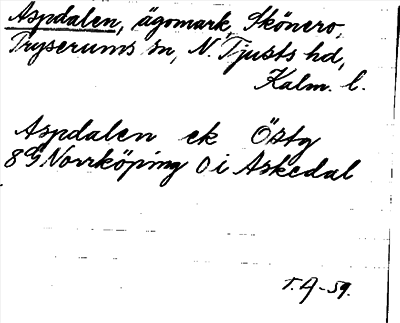 Aspdalen, ägomark, Skönero,
Tryserums sn, N. Tjusts hd,
Kalm. l.
Aspdalen ek Östg
8G Norrköping 0 i Askedal
T.A-59.